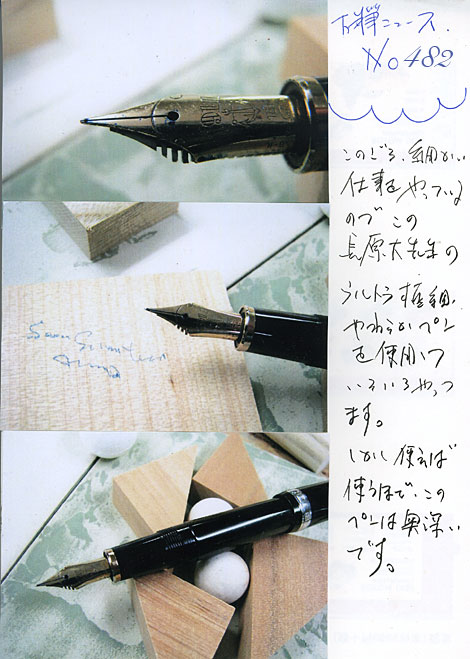 万年筆ニュース.
No 482
このごろ、細かい
仕事をやっている
のでこの
長原大先生の
ウルトラ極細、
やわらかペン
を使用して
いろいろやって
ます。
しかし使えば
使うほど、この
ペンは奥深い
です。